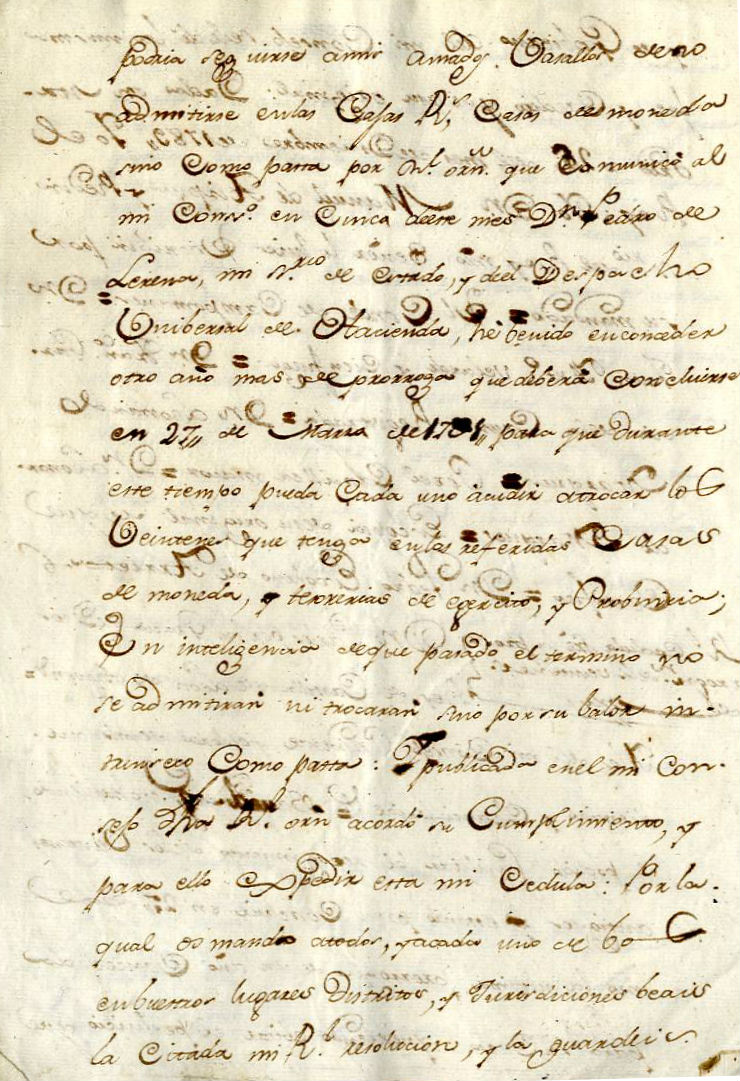 podria seguirse amis amados Vasallos de no
admitirse en las Casas Rs. Casas de moneda
sino Como pasta por Rl. orn. que Comunicó al
mi Consº. en Cinco deeste mes Dn. Pedro de
Lerena, mi Srio de estado, y del Despacho
Unibersal de Hacienda, he benido en conceder
otro año mas de prorroga que deberá Concluirse
en 27,, de Marzo de para que durante
este tiempo pueda Cada uno acudir atrocar los
Veintenes que tenga en las referidas Casas
de moneda, y tesorerias de egercito, y Probincia;
En inteligencia deque pasado el termino no
se admitiran ni trocaran sino por su balor in-
trinseco Como pasta: Y publicada enel mi Con-
sejo dha Rl. orn acordó su Cumplimiento, y
para ello expedir esta mi Cedula: Por la
qual os mando atodos, yacada uno de bos
enbuestros lugares Distritos, y Jurisdiciones beais
la Citada mi Rl. resolucion, y la guardeis